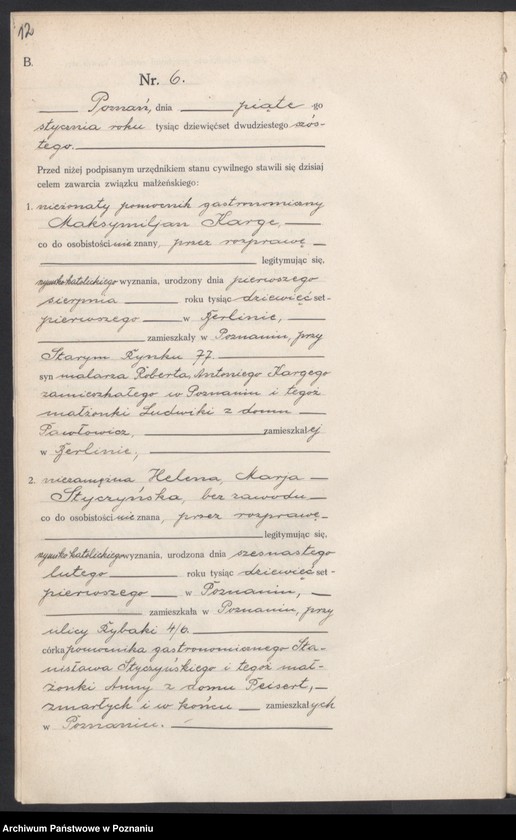 12
B.
Nr. 6.
Poznań, dnia piąte go
stycznia roku tysiąc dziewięćset dwudziestego szós-
tego.
Przed niżej podpisanym urzędnikiem stanu cywilnego stawili się dzisiaj
celem zawarcia związku małżeńskiego:
1. nieżonaty pomocnik gastronomiczny
Maksymiljan Karge,
co do osobistości nie znany, przez rozprawę
legitymując się,
rzymsko katolickiego wyznania, urodzony dnia pierwszego
sierpnia roku tysiąc dziewięć set-
pierwszego w Berlinie,
zamieszkały w Poznaniu, przy
Starym Rynku 77.
syn malarza Roberta, Antoniego Kargego
zamieszkałego w Poznaniu i tegoż
małżonki Ludwiki z domu
Pawłowicz, zamieszkałej
w Berlinie,
2. niezamężna Helena, Marja
Styczyńska, bez zawodu
co do osobistości nie znana, przez rozprawę
legitymując się,
rzymsko katolickiego wyznania, urodzona dnia szesnastego
lutego roku tysiąc dziewięć set-
pierwszego w Poznaniu,
zamieszkała w Poznaniu, przy
ulicy Rybaki 4/6.
córka pomocnika gastronomicznego Sta-
nisława Styczyńskiego i tegoż mał-
żonki Anny z domu Peisert,
zmarłych i w końcu zamieszkałych
w Poznaniu.
Archiwum Państwowe w Poznaniu